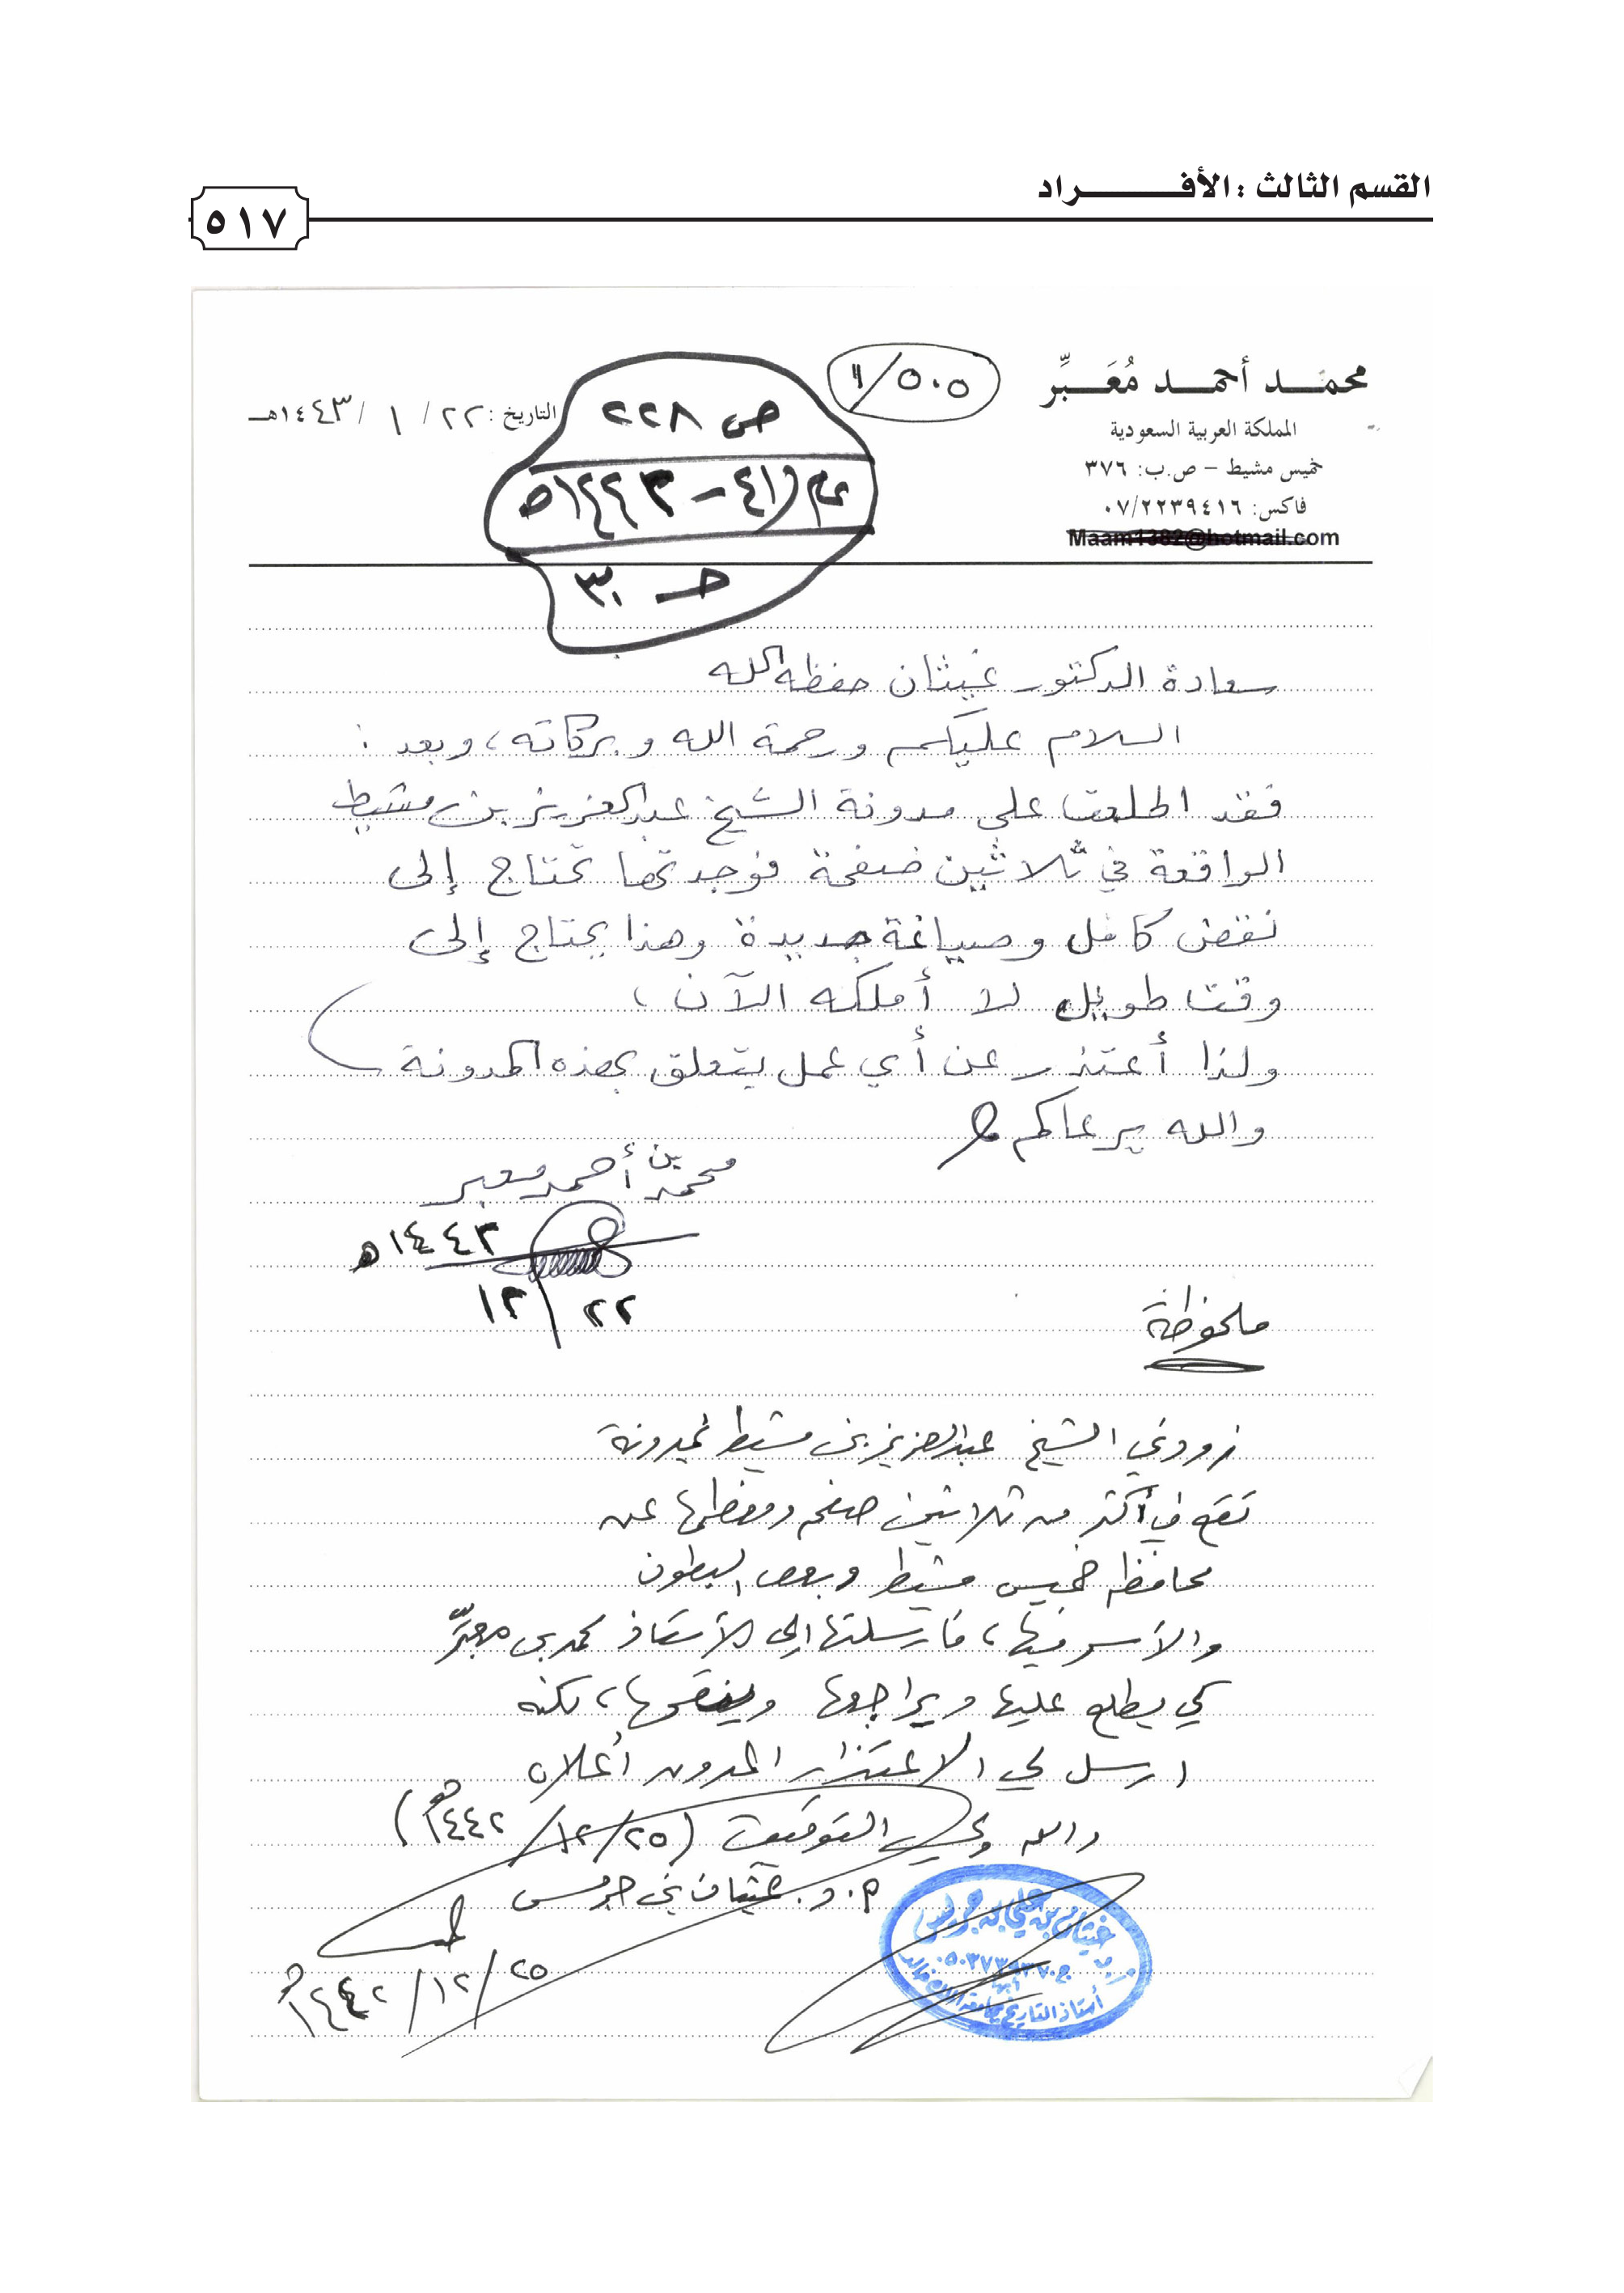 القسم الثالث : الأفـــــراد
٥١٧
محمّد أحمد مُعَبِّر
المملكة العربية السعودية
خميس مشيط – ص.ب: ٣٧٦
فاكس: ٠٧/٢٢٣٩٤١٦
Maam1382@hotmail.com
٥٠٥/
التاريخ : ٢٢ / ١ / ١٤٤٣هـ
ص ٢٢٨
حـ ٣٠
سعادة الدكتور غيثان حفظه الله
السلام عليكم ورحمة الله وبركاته، وبعد :
فقد اطلعت على مدونة الشيخ عبدالعزيز بن مشيط
الواقعة في ثلاثين صفحة فوجدتها تحتاج إلى
نقض كامل وصياغة جديدة وهذا يحتاج إلى
وقت طويل لا أملكه الآن،
ولذا أعتذر عن أي عمل يتعلق بهذه المدونة
والله يرعاكم
محمد بن أحمد معبر
١٤٤٢هـ
٢٢/١٢
ملحوظة
زودني الشيخ عبدالعزيز بن مشيط بمدونة
تقع في أكثر من ثلاثين صفحة ومعظمها عن
محافظة خميس مشيط وبعض البطون
والأسر فيها، فأرسلتها إلى الأستاذ محمد بن معبّر
كي يطلع عليها ويراجعها وينقحها، لكنه
أرسل لي الاعتذار المدون أعلاه
والله ولي التوفيق (٢٥/١٢/١٤٤٢هـ)
أ. د. غيثان بن جريس
٢٥/١٢/١٤٤٢هـ
غيثان بن علي بن جريس
أستاذ التاريخ بجامعة الملك خالد